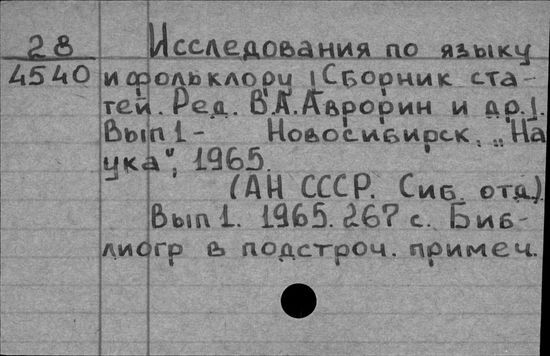 28
4540
Исследования по языку
и фольклору [Сборник ста-
тей. Ред. В.А.Аврорин и др].
Вып 1- Новосибирск. „На
ука", 1965.
(АН СССР. Сиб. отд).
Вып 1. 1965. 267 с. Биб-
лиогр в подстроч. примеч.